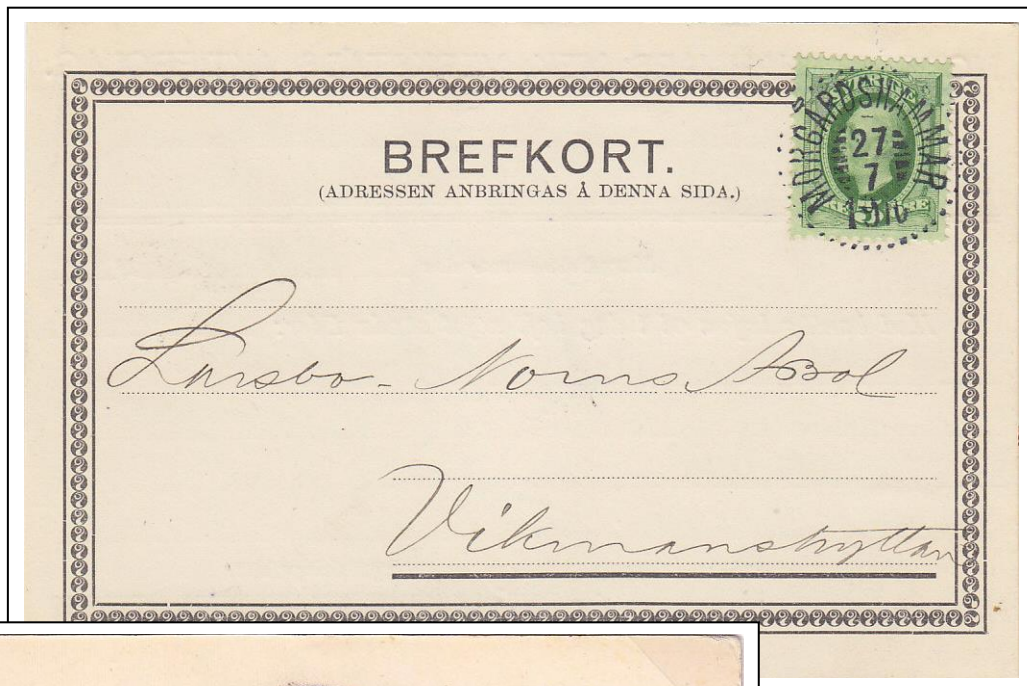 BREFKORT.
(ADRESSEN ANBRINGAS Å DENNA SIDA.)
NORGÅRDSHAMMAR
27
7
Larsbo - Norns
Vikmanshyttan